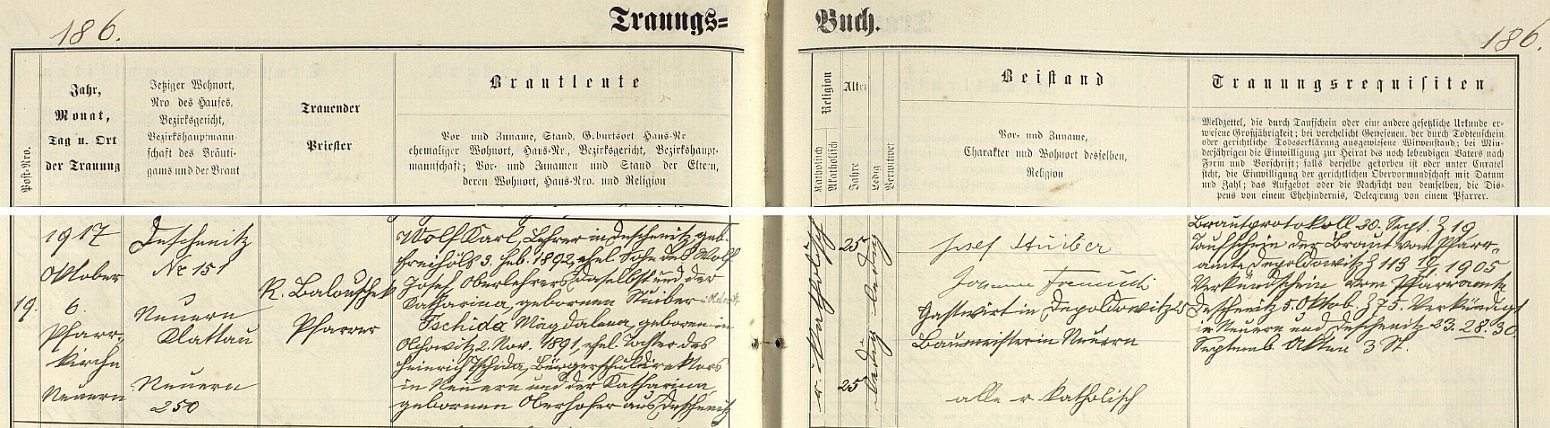 186.
Trauungs=
Buch.
186.
Post-Nro.
Jahr,
Monat,
Tag u. Ort
der Trauung
Jetziger Wohnort,
Nro des Hauses,
Bezirksgericht,
Bezirkshauptmann-
schaft des Bräuti-
gams und der Braut
Trauender
Priester
Brautleute
Vor- und Zuname, Stand, Geburtsort Haus-Nr
ehemaliger Wohnort, Haus-Nr., Bezirksgericht, Bezirkshaupt-
mannschaft; Vor- und Zunamen und Stand der Eltern,
deren Wohnort, Haus-Nro. und Religion
Religion
Katholisch
Akatholisch
Alter
Jahre
Ledig
Verwitwet
Beistand
Vor- und Zuname,
Charakter und Wohnort desselben,
Religion
Trauungsrequisiten
Meldzettel, die durch Taufschein oder eine andere gesetzliche Urkunde er-
wiesene Großjährigkeit; bei verehelicht Gewesenen, der durch Todtenschein
oder gerichtliche Todeserklärung ausgewiesene Witwenstand; bei Min-
derjährigen die Einwilligung zur Heirat des noch lebendigen Vaters nach
Form und Vorschrift; falls derselbe gestorben ist oder unter Curatel
steht, die Einwilligung der gerichtlichen Obervormundschaft mit Datum
und Zahl; das Aufgebot oder die Nachsicht von demselben, die Dis-
pens von einem Ehehindernis, Delegirung von einem Pfarrer.
19.
1917
Oktober
6.
Pfarr-
kirche
Neuern
Deschenitz
No 151
Neuern
Klattau
Neuern
250
R. Balouschek
Pfarrer
Wolf Karl, Lehrer in Deschenitz, geb.
Freihöls 3. Feb. 1892, ehel. Sohn des Wolf
Josef, Oberlehrers daselbst und der
Katharina, gebornen Stuiber
Tschida Magdalena, geboren in
Olchowitz 2. Nov. 1891, ehel. Tochter des
Heinrich Tschida, Bürgerschuldirektors
in Neuern und der Katharina,
gebornen Oberhofer aus Deschenitz
r. katholisch
25
ledig
25
ledig
Josef Stuiber
Johann
Gastwirt in Depoldowitz 25
Baumeister in Neuern
alle r katholisch
Brautprotokoll 30. Sept. Z 19
Taufschein der Braut vom Pfarr-
amte Depoldowitz Z 113 1905
Verkündschein vom Pfarramte
Deschenitz 5. Oktob. Z 75. Verkündigt
in Neuern und Deschenitz 23. 28. 30.
Septemb. Akten 3 St.